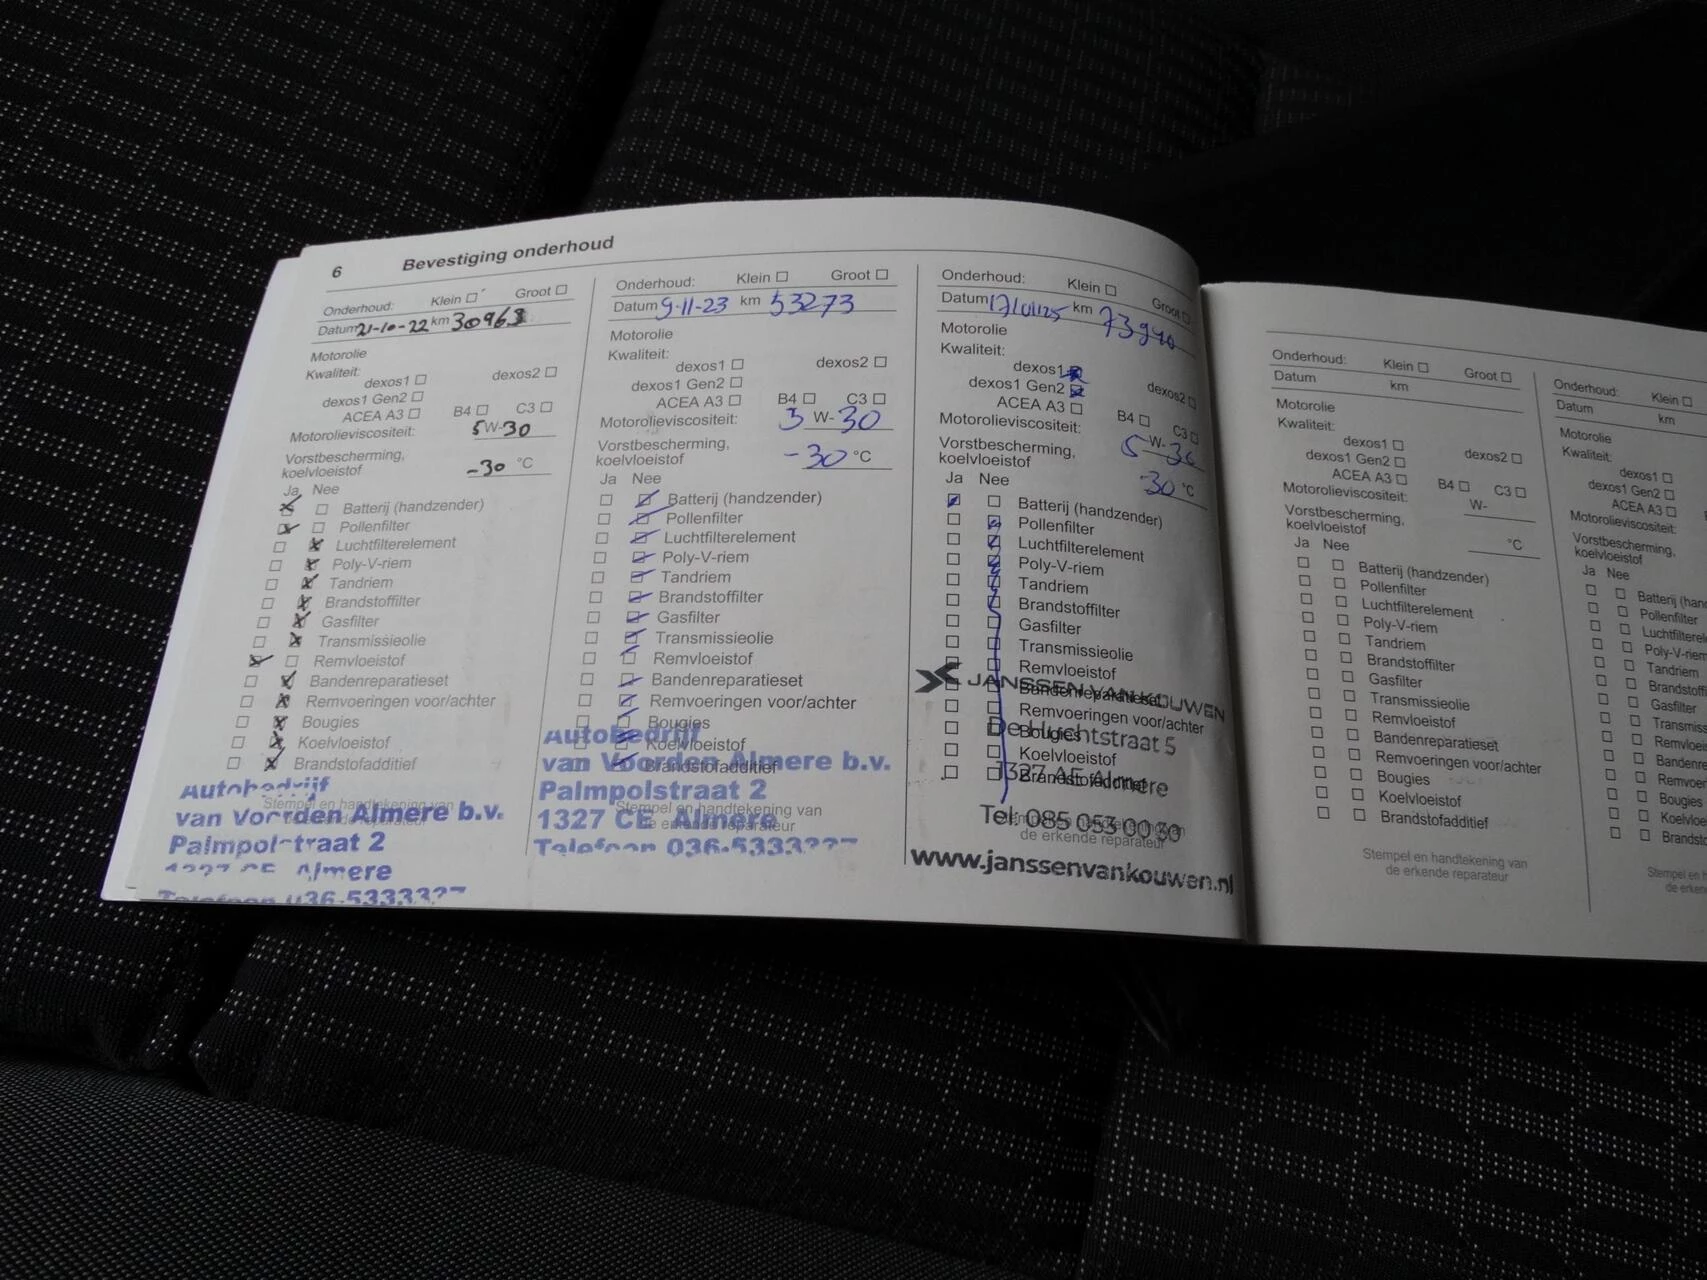 6 Bevestiging onderhoud
Onderhoud: Klein Groot
Datum 21-10-22 km 30963
Motorolie
Kwaliteit:
dexos1 dexos2
dexos1 Gen2
ACEA A3 B4 C3
Motorolieviscositeit: 5 W-30
Vorstbescherming,
koelvloeistof -30 °C
Ja Nee
Batterij (handzender)
Pollenfilter
Luchtfilterelement
Poly-V-riem
Tandriem
Brandstoffilter
Gasfilter
Transmissieolie
Remvloeistof
Bandenreparatieset
Remvoeringen voor/achter
Bougies
Koelvloeistof
Brandstofadditief
Stempel en handtekening van
de erkende reparateur
Autobedrijf
van Voorden Almere b.v.
Palmpolstraat 2
1327 CE Almere
Telefoon 036-5333327
Onderhoud: Klein Groot
Datum 9-11-23 km 53273
Motorolie
Kwaliteit:
dexos1 dexos2
dexos1 Gen2
ACEA A3 B4 C3
Motorolieviscositeit: W-30
Vorstbescherming,
koelvloeistof -30 °C
Ja Nee
Batterij (handzender)
Pollenfilter
Luchtfilterelement
Poly-V-riem
Tandriem
Brandstoffilter
Gasfilter
Transmissieolie
Remvloeistof
Bandenreparatieset
Remvoeringen voor/achter
Bougies
Koelvloeistof
Brandstofadditief
Stempel en handtekening van
de erkende reparateur
Autobedrijf
van Voorden Almere b.v.
Palmpolstraat 2
1327 CE Almere
Telefoon 036-5333327
Onderhoud: Klein Groot
Datum 17/01/25 km 73940
Motorolie
Kwaliteit:
dexos1
dexos1 Gen2 dexos2
ACEA A3 B4 C3
Motorolieviscositeit: 5 W-30
Vorstbescherming,
koelvloeistof -30 °C
Ja Nee
Batterij (handzender)
Pollenfilter
Luchtfilterelement
Poly-V-riem
Tandriem
Brandstoffilter
Gasfilter
Transmissieolie
Remvloeistof
Bandenreparatieset
Remvoeringen voor/achter
Bougies
Koelvloeistof
Brandstofadditief
de erkende reparateur
JANSSEN VAN KOUWEN
De Huchtstraat 5
1327 AE Almere
Tel: 085 053 00 30
www.janssenvankouwen.nl
Onderhoud: Klein Groot
Datum km
Motorolie
Kwaliteit:
dexos1 dexos2
dexos1 Gen2
ACEA A3 B4 C3
Motorolieviscositeit: W-
Vorstbescherming,
koelvloeistof °C
Ja Nee
Batterij (handzender)
Pollenfilter
Luchtfilterelement
Poly-V-riem
Tandriem
Brandstoffilter
Gasfilter
Transmissieolie
Remvloeistof
Bandenreparatieset
Remvoeringen voor/achter
Bougies
Koelvloeistof
Brandstofadditief
Stempel en handtekening van
de erkende reparateur
Onderhoud: Klein
Datum km
Motorolie
Kwaliteit:
dexos1
dexos1 Gen2
ACEA A3
Motorolieviscositeit:
Vorstbescherming,
koelvloeistof
Ja Nee
Batterij (han
Pollenfilter
Luchtfilterel
Poly-V-riem
Tandriem
Brandstoffi
Gasfilter
Transmiss
Remvloei
Bandenre
Remvoer
Bougies
Koelvloe
Brandst
Stempel en h
de erken